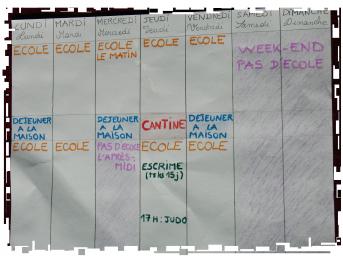 LUNDI MARDI MERCREDI JEUDI VENDREDI SAMEDI DIMANCHE
Lundi Mardi Mercredi Jeudi Vendredi Samedi Dimanche
ECOLE ECOLE ECOLE ECOLE ECOLE WEEK-END
LE MATIN PAS D'ECOLE
DEJEUNER DEJEUNER CANTINE DEJEUNER
A LA A LA A LA
MAISON MAISON MAISON
ECOLE ECOLE PAS D'ECOLE ECOLE ECOLE
L'APRÈS-
MIDI ESCRIME
(ts les 15j)
17H: JUDO